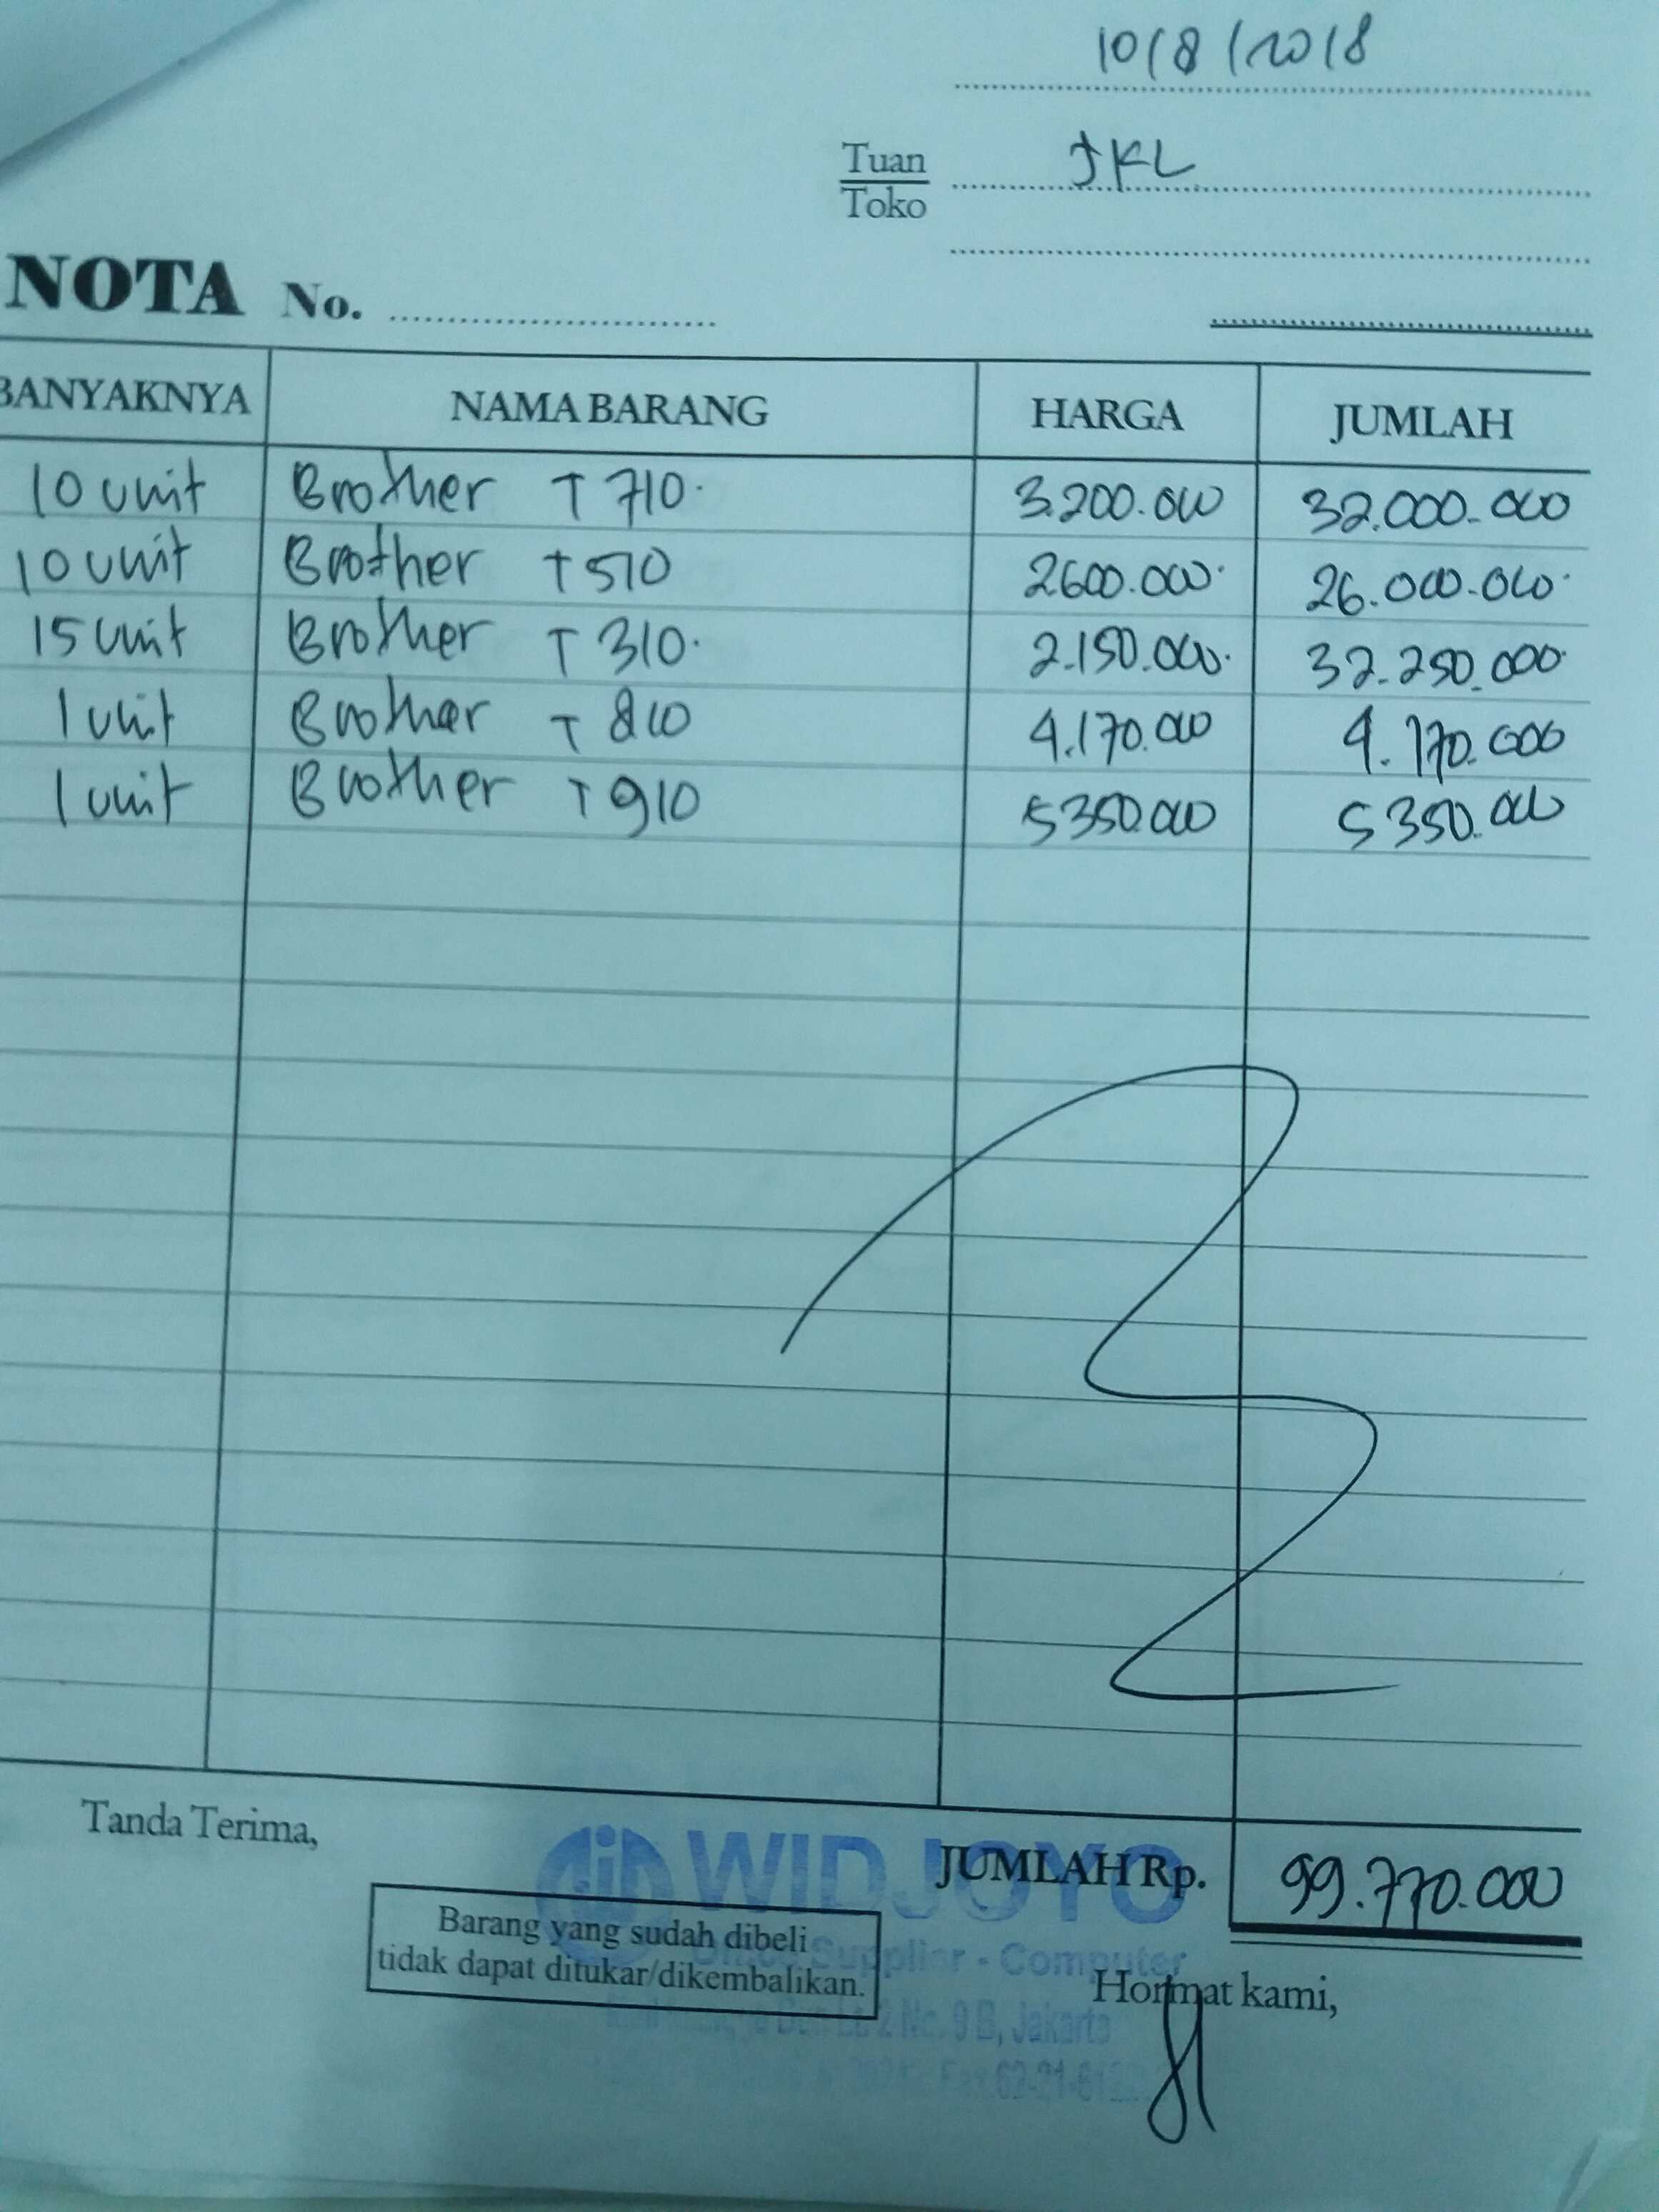 10/8/2018
Tuan
Toko
JKL
NOTA No.
BANYAKNYA NAMA BARANG HARGA JUMLAH
10 unit Brother T 710. 3.200.000 32.000.000
10 unit Brother T 510 2600.000. 26.000.000.
15 unit Brother T 310. 2.150.000. 32.250.000
1 unit Brother T 810 4.170.000 4.170.000
1 unit Brother T 910 5350.000 5350.000
Tanda Terima,
WIDJOYO
JUMLAH Rp. 99.770.000
Barang yang sudah dibeli
tidak dapat ditukar/dikembalikan.
Supplier - Computer
Hormat kami,
2 No. 9 B, Jakarta